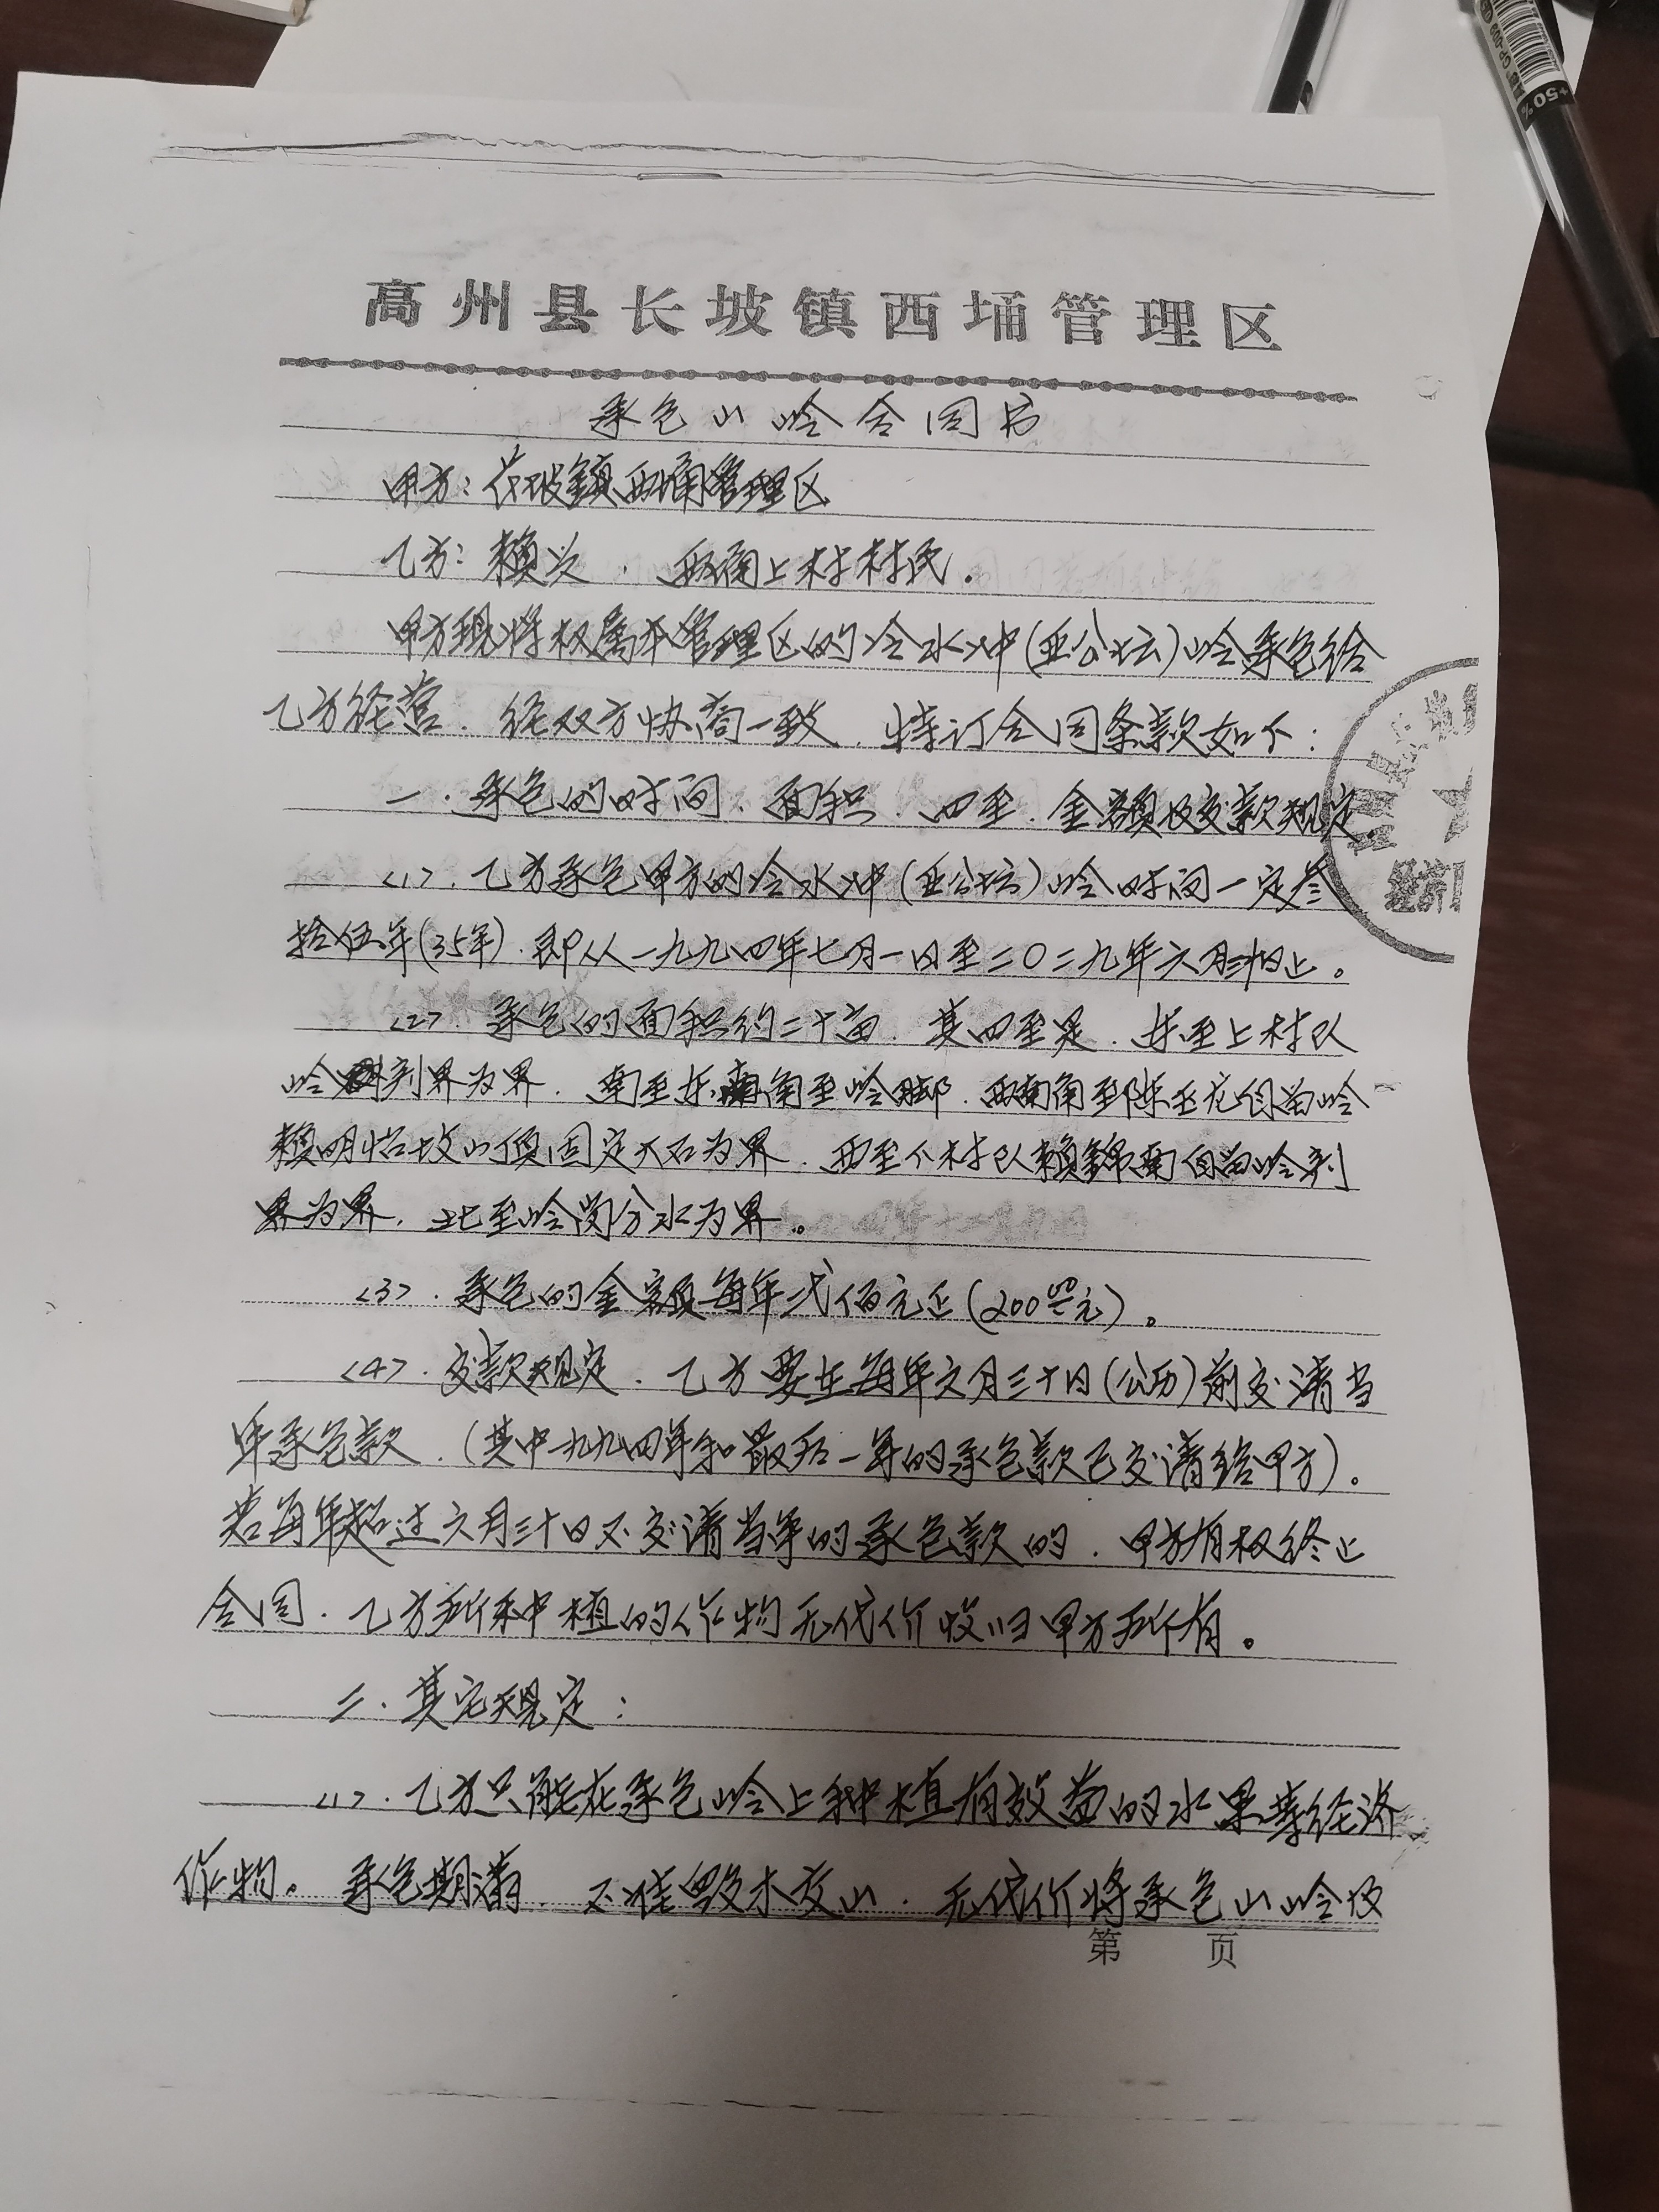 高州县长坡镇西埇管理区
承包山岭合同书
甲方：长坡镇西埇管理区
乙方：赖兴．西埇上村村民。
甲方现将权属本管理区的冷水冲（亚公坛）岭承包给
乙方经营．经双方协商一致．特订合同条款如下：
一．承包的时间．面积．四至．金额及交款规定
〈1〉．乙方承包甲方的冷水冲（亚公坛）岭时间一定叁
拾伍年（35年）．即从一九九四年七月一日至二〇二九年六月三十日止。
〈2〉．承包的面积约二十亩．其四至是．东至上村队
岭 界为界．南至东南角至岭脚．西南角至陈 龙自留岭
赖明 坟山顶固定大石为界．西至下村队赖 南自留岭
界为界．北至岭岗分水为界。
〈3〉．承包的金额每年弍佰元正（200.00元）。
〈4〉．交款规定．乙方要在每年六月三十日（公历）前交清当
年承包款．（其中一九九四年和最后一年的承包款已交清给甲方）。
若每年超过六月三十日不交清当年的承包款的．甲方有权终止
合同．乙方所种植的作物无代价收归甲方所有。
二．其它规定：
〈1〉．乙方只能在承包岭上种植有效益的水果等经济
作物。承包期满．不准毁木荒山．无代价将承包山岭及
第 页
+50%
GP-008